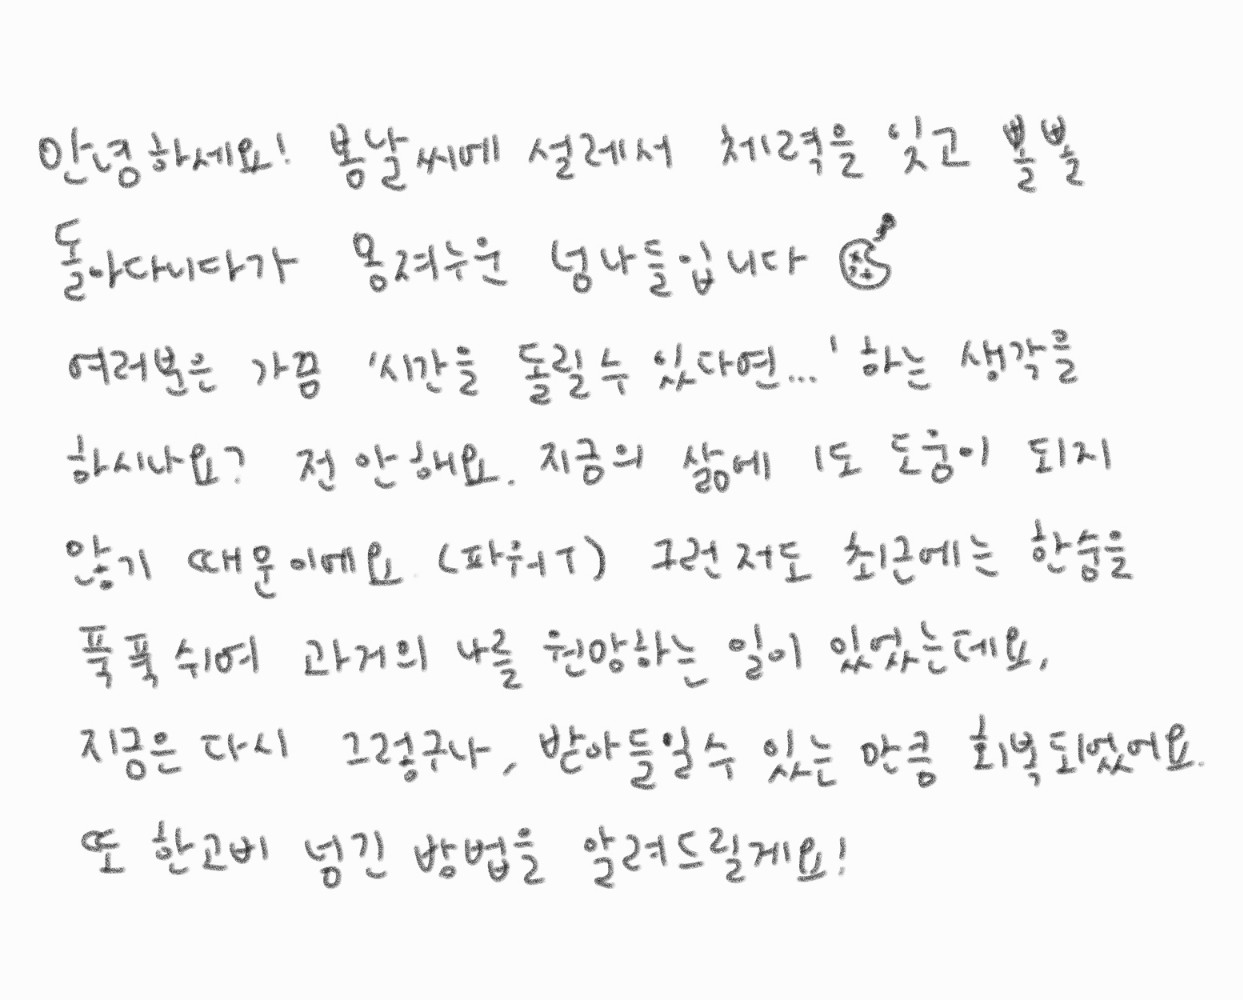 안녕하세요! 봄날씨에 설레서 체력을 잊고 뽈뽈
돌아다니다가 몸져누운 넝나들입니다
여러분은 가끔 '시간을 돌릴수 있다면...' 하는 생각을
하시나요? 전 안해요. 지금의 삶에 1도 도움이 되지
않기 때문이에요 (파워T) 그런 저도 최근에는 한숨을
푹푹 쉬며 과거의 나를 원망하는 일이 있었는데요,
지금은 다시 그렇구나, 받아들일수 있는 만큼 회복되었어요.
또 한고비 넘긴 방법을 알려드릴게요!